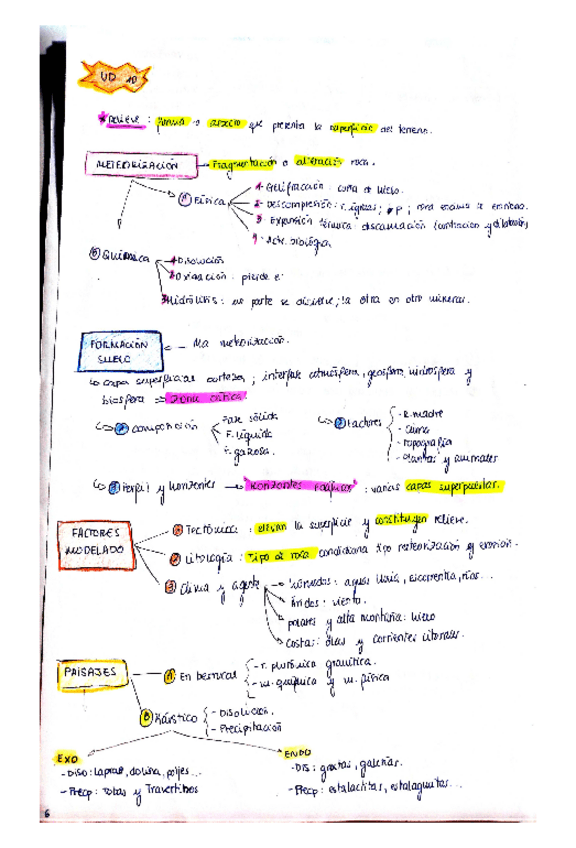 UD 10
*RELIEVE: forma o aspecto que presenta la superficie del terreno.
METEORIZACIÓN → Fragmentación o alteración roca.
① Física
1- Gelifracción: cuña de hielo.
2- Descompresión: r. ígneas; P; roca encima se erosiona.
3 Expansión térmica: descamación (contracción y dilatación)
4- Act. biológica
② Química
1 Disolución
2 Oxidación: pierde e⁻
3 Hidrólisis: una parte se disuelve; la otra en otro mineral.
FORMACIÓN SUELO - Ma meteorización.
↳ capa superficial corteza; interfase atmósfera, geosfera, hidrosfera y
biosfera ⇒ zona crítica.
↳ ① Composición
Fase sólida
F. líquida
F. gaseosa.
↳ ② Factores
- R. madre
- Clima
- Topografía
- Plantas y animales
↳ ③ Perfil y horizontes → "Horizontes edáficos": varias capas superpuestas.
FACTORES MODELADO
① Tectónica: elevan la superficie y constituyen relieve.
② Litología: Tipo de roca condiciona tipo meteorización y erosión.
③ Clima y agente
→ Húmedos: aguas lluvia, escorrentía, ríos...
Áridos: viento.
polares y alta montaña: hielo
Costas: olas y corrientes litorales.
PAISAJES
① En berrocal
- r. plutónica granítica.
- m. química y m. física
② Kárstico
- Disolución.
- Precipitación
EXO
- Diso: lapiaz, dolina, poljes...
- Precip: Tobas y Travertinos
ENDO
- Dis: grutas, galerías.
- Precp: estalactitas, estalagmitas...
6